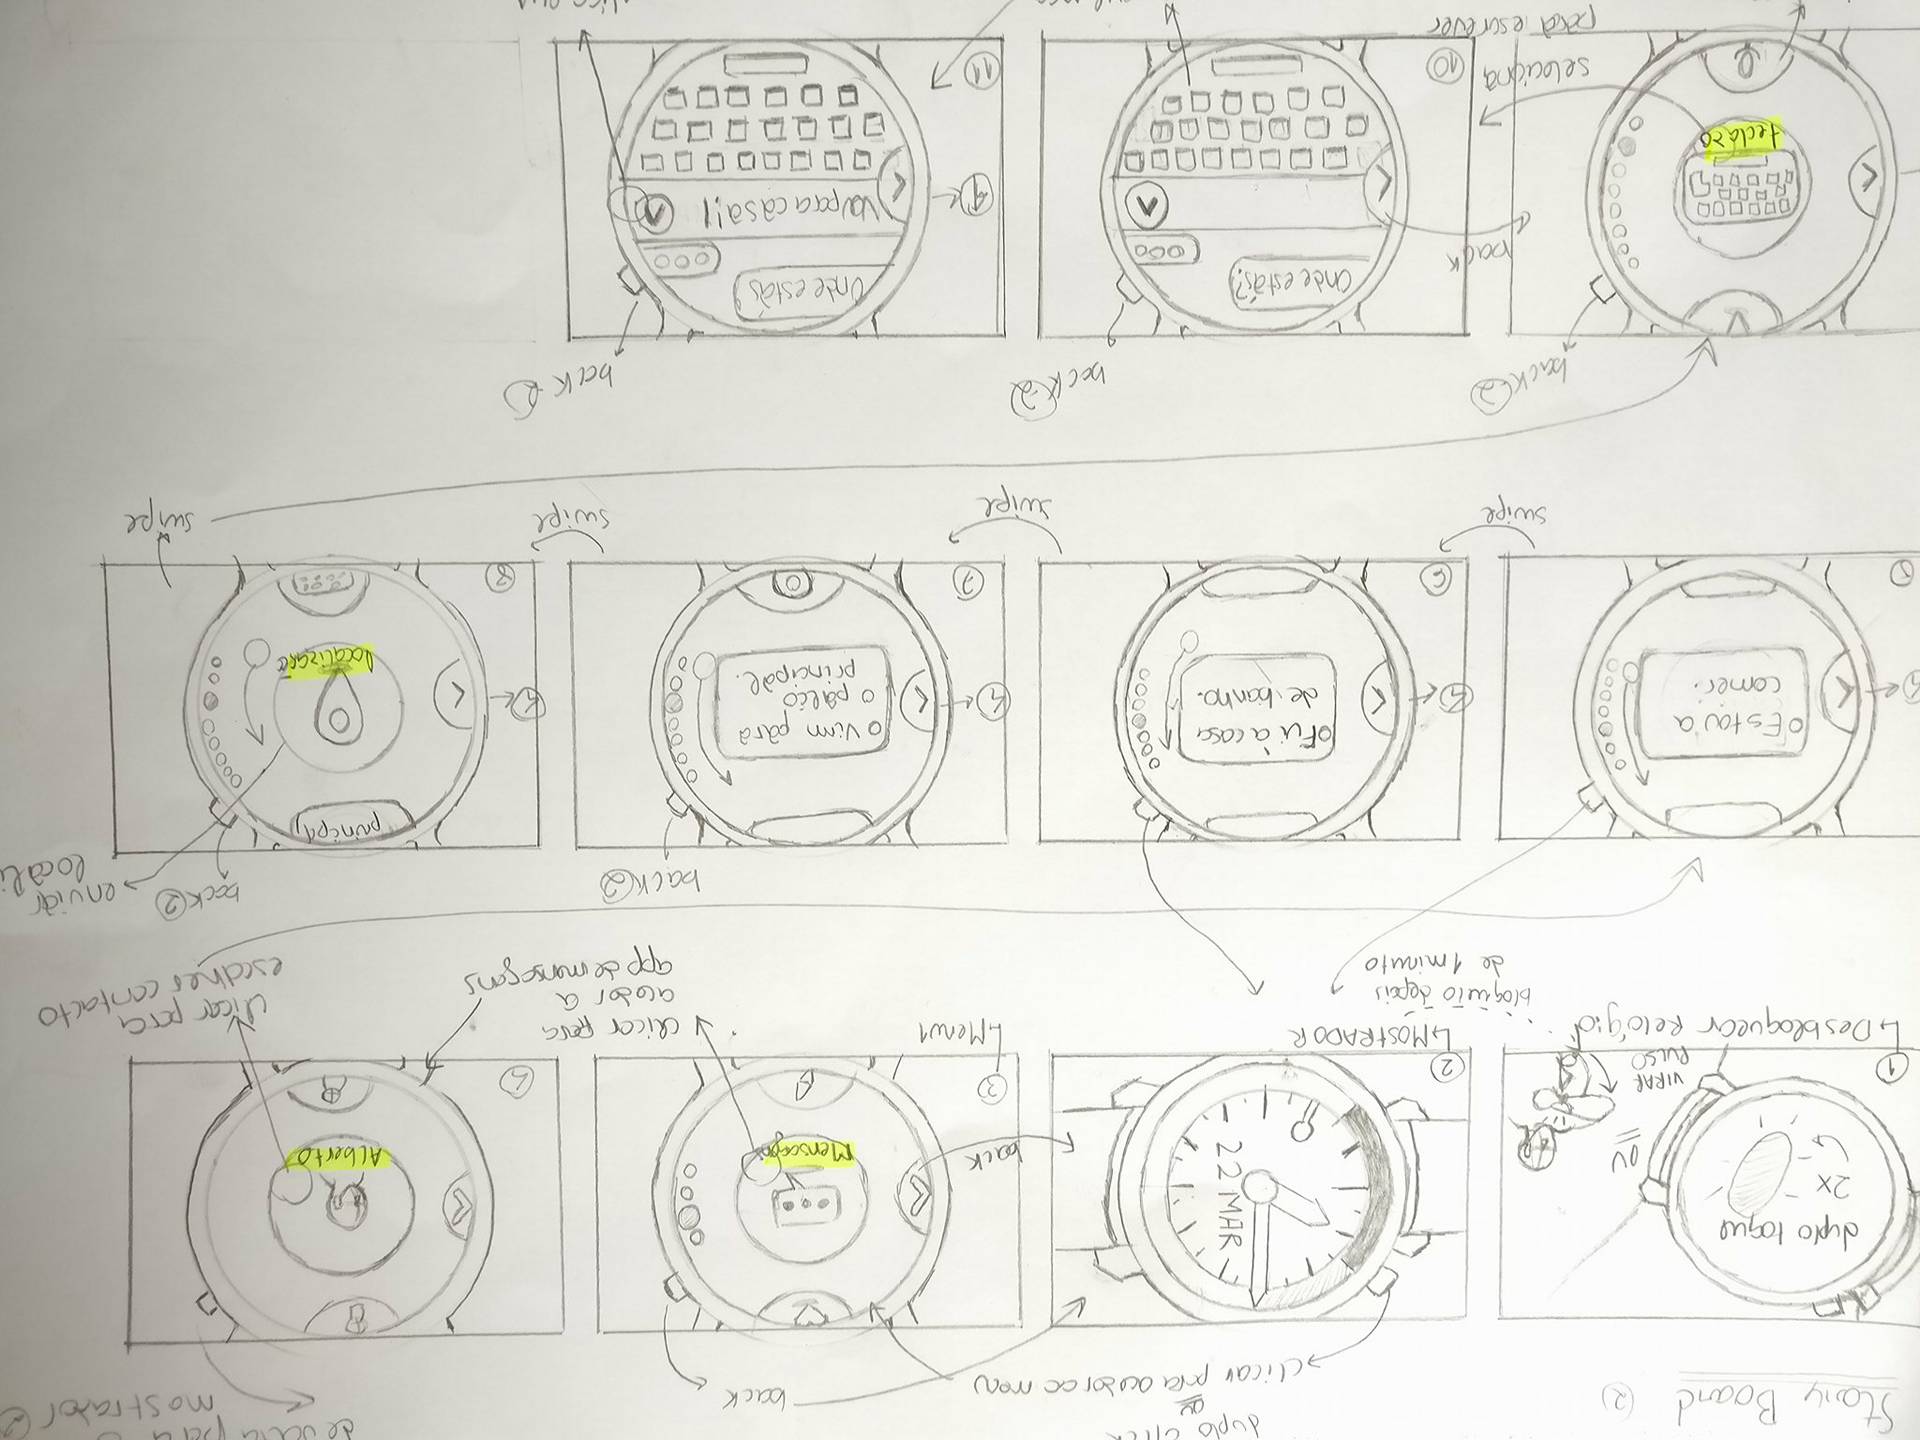 Story Board 2
duplo click
ou
clicar para aceder ao menu
back
mostrador 2
duplo toque
2x
OU
VIRAR
PULSO
1
Desbloquear Relógio
22 MAR
2
MOSTRADOR
bloqueio depois
de 1 minuto
back
Mensagens
3
Menu1
clicar para
aceder à
app de mensagens
Alberto
4
clicar para
escolher contacto
Estou a
comer.
5
swipe
Fui à casa
de banho.
6
swipe
back 2
Vim para
o palco
principal.
7
swipe
back 2
enviar
principal
Localização
8
swipe
back-2
teclado
seleciona
para escrever
back
back-2
Onde estás?
10
back-2
Onde estás
Vou para casa!
11